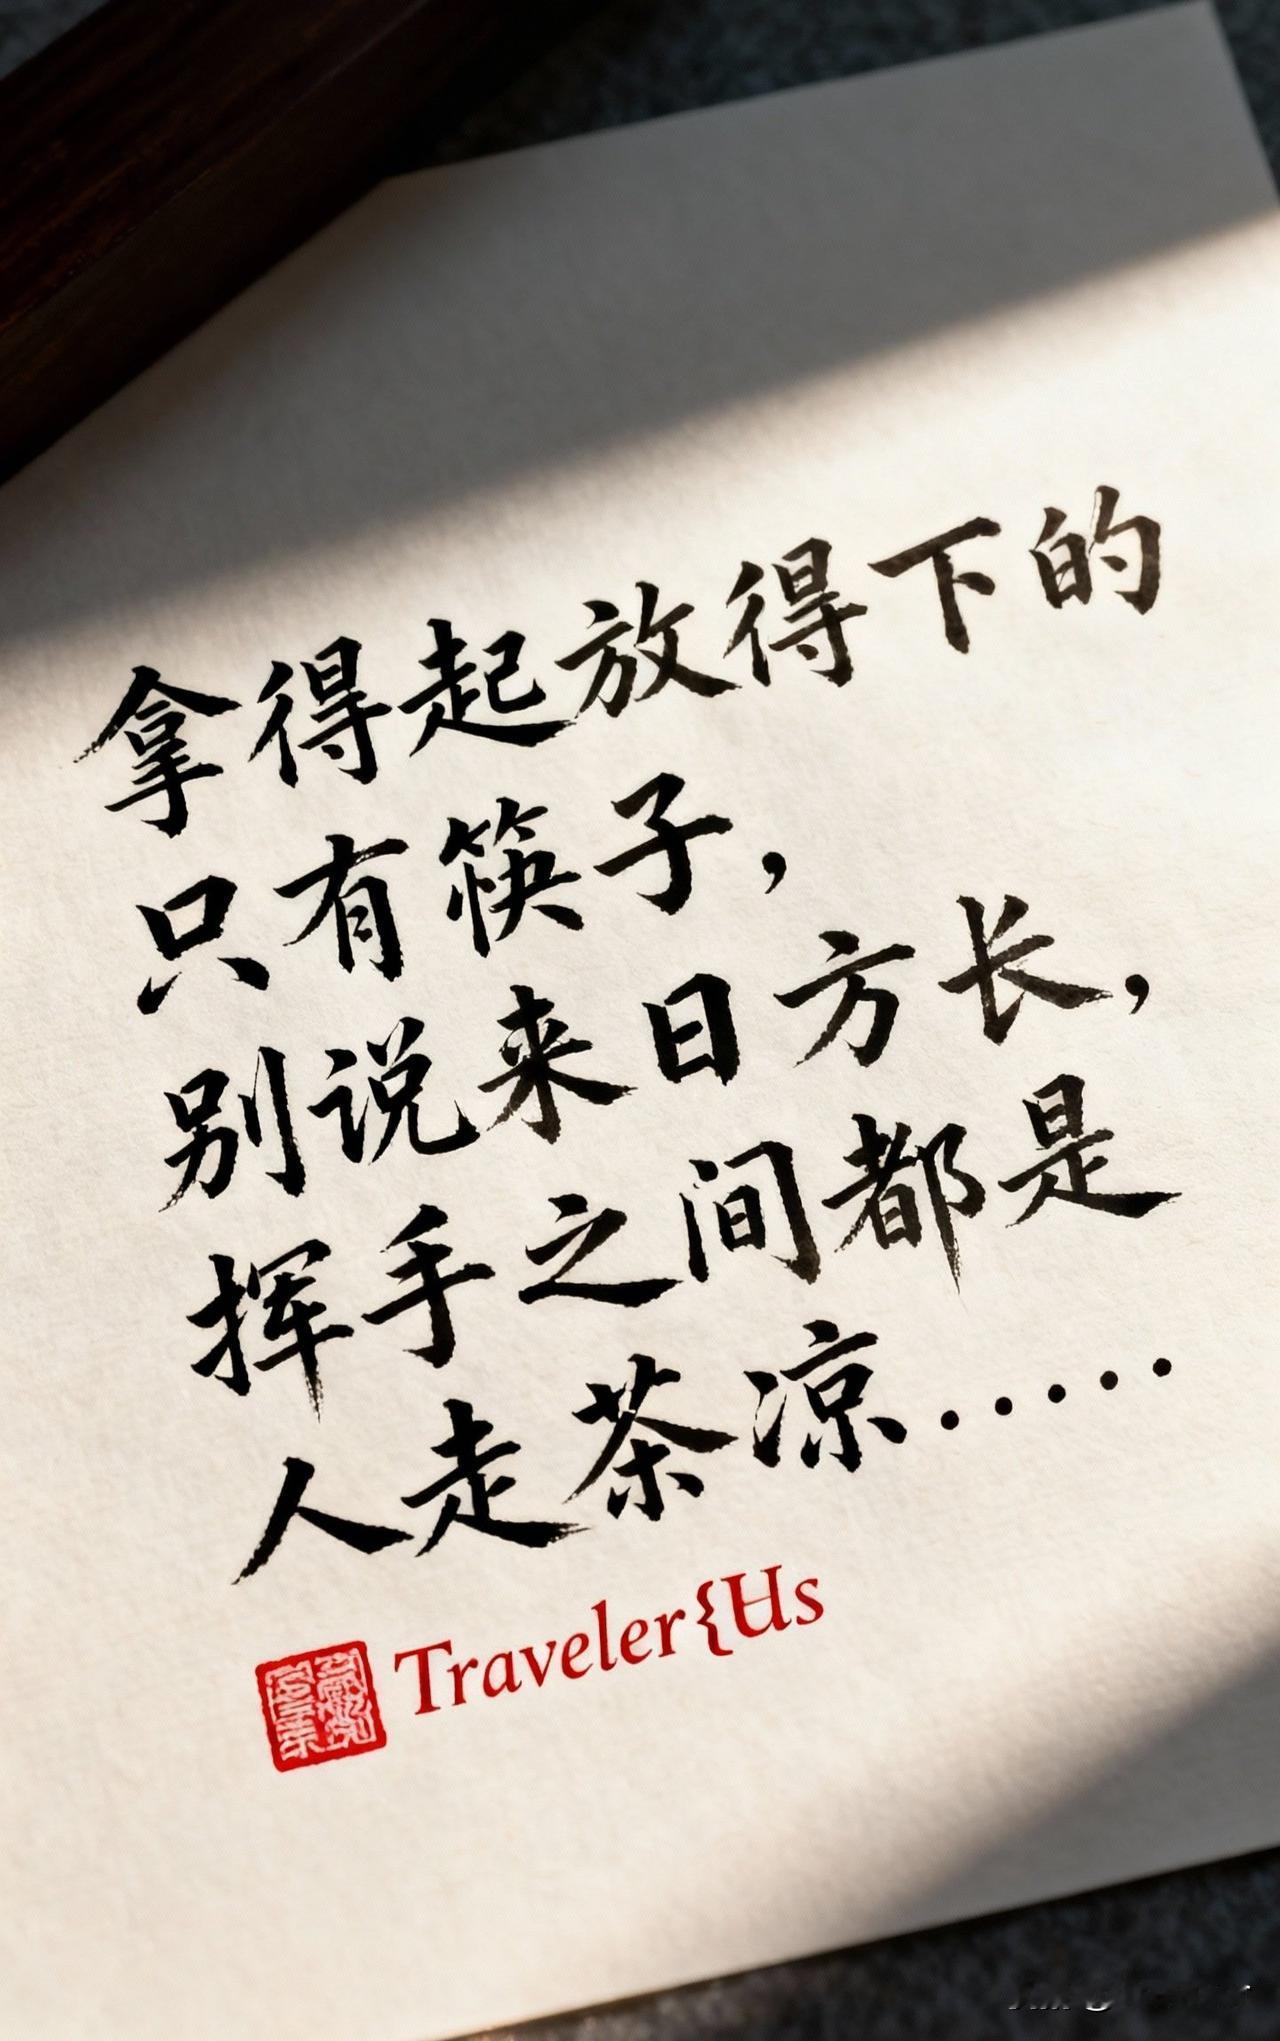 拿得起放得下的
只有筷子，
别说来日方长，
挥手之间都是
人走茶凉.....
Traveler{Us